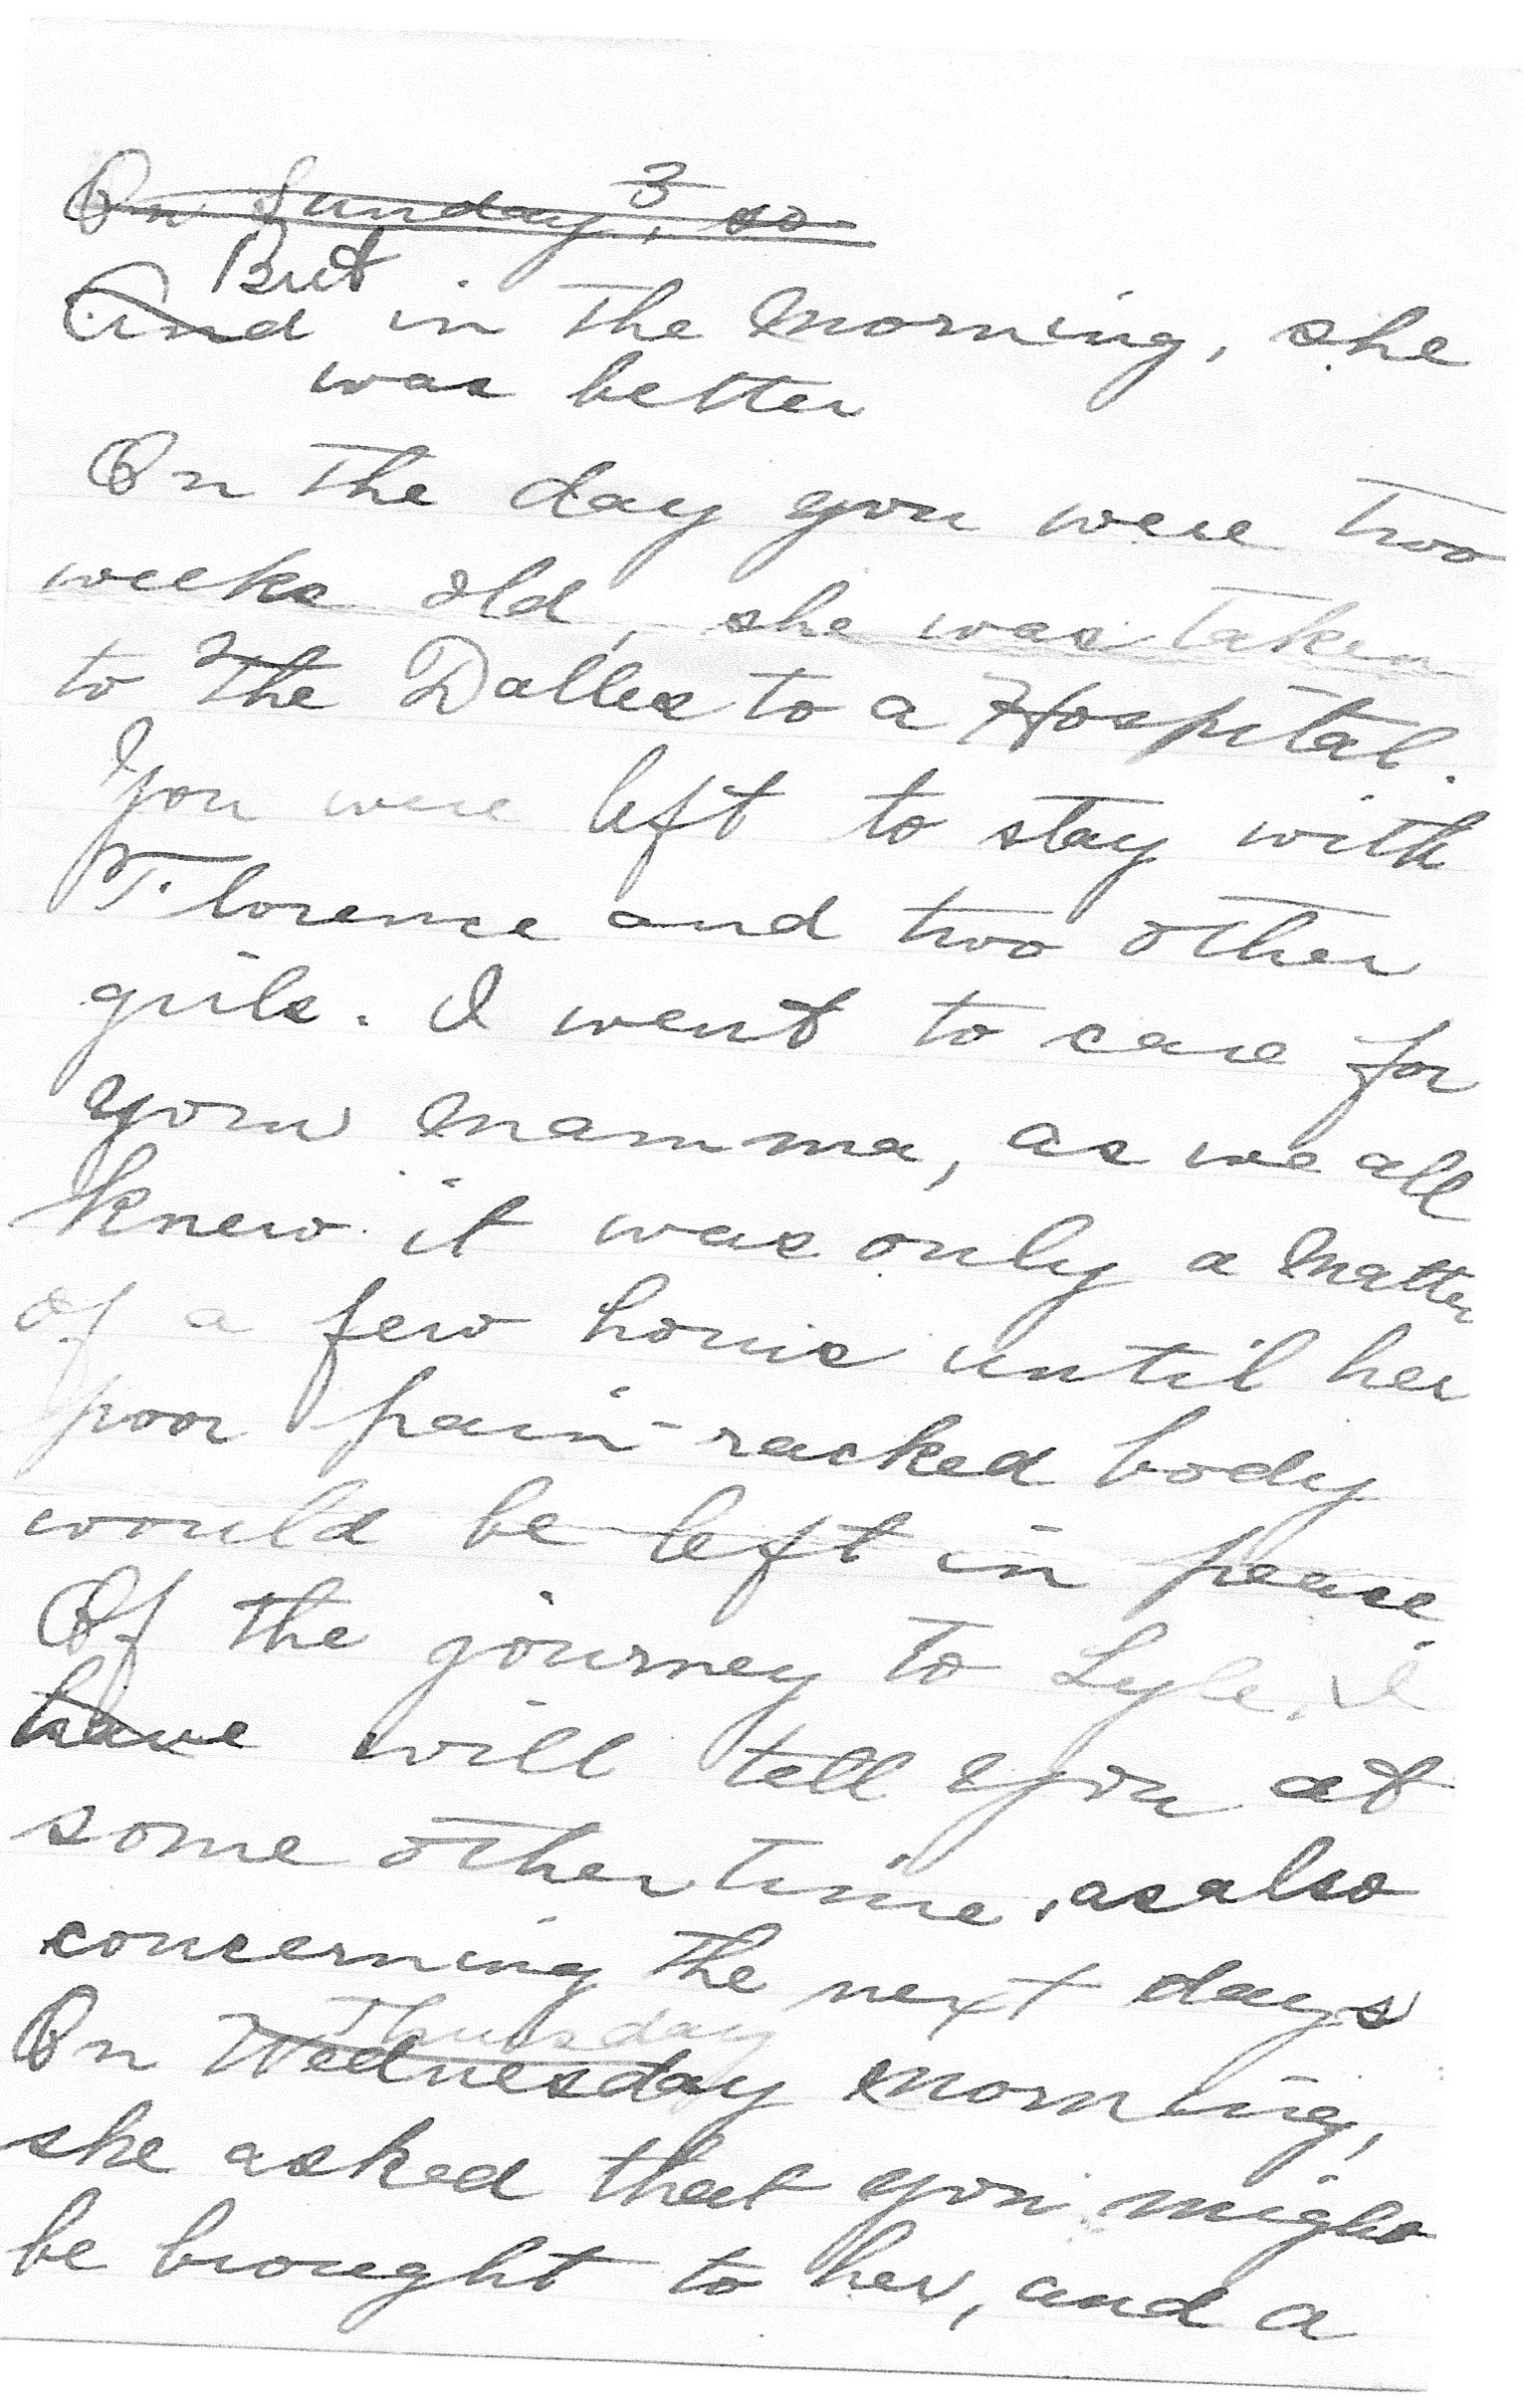 On Sunday, 3, so
But
And in the morning, she
was better
On the day you were two
weeks old, she was taken
to The Dalles to a Hospital.
You were left to stay with
Florence and two other
girls. I went to care for
your mamma, as we all
knew it was only a matter
of a few hours until her
poor pain-racked body
would be left in peace.
Of the journey to Lyle, I
have will tell you at
some other time, as also
concerning the next days
Thursday
On Wednesday morning,
she asked that you might
be brought to her, and a